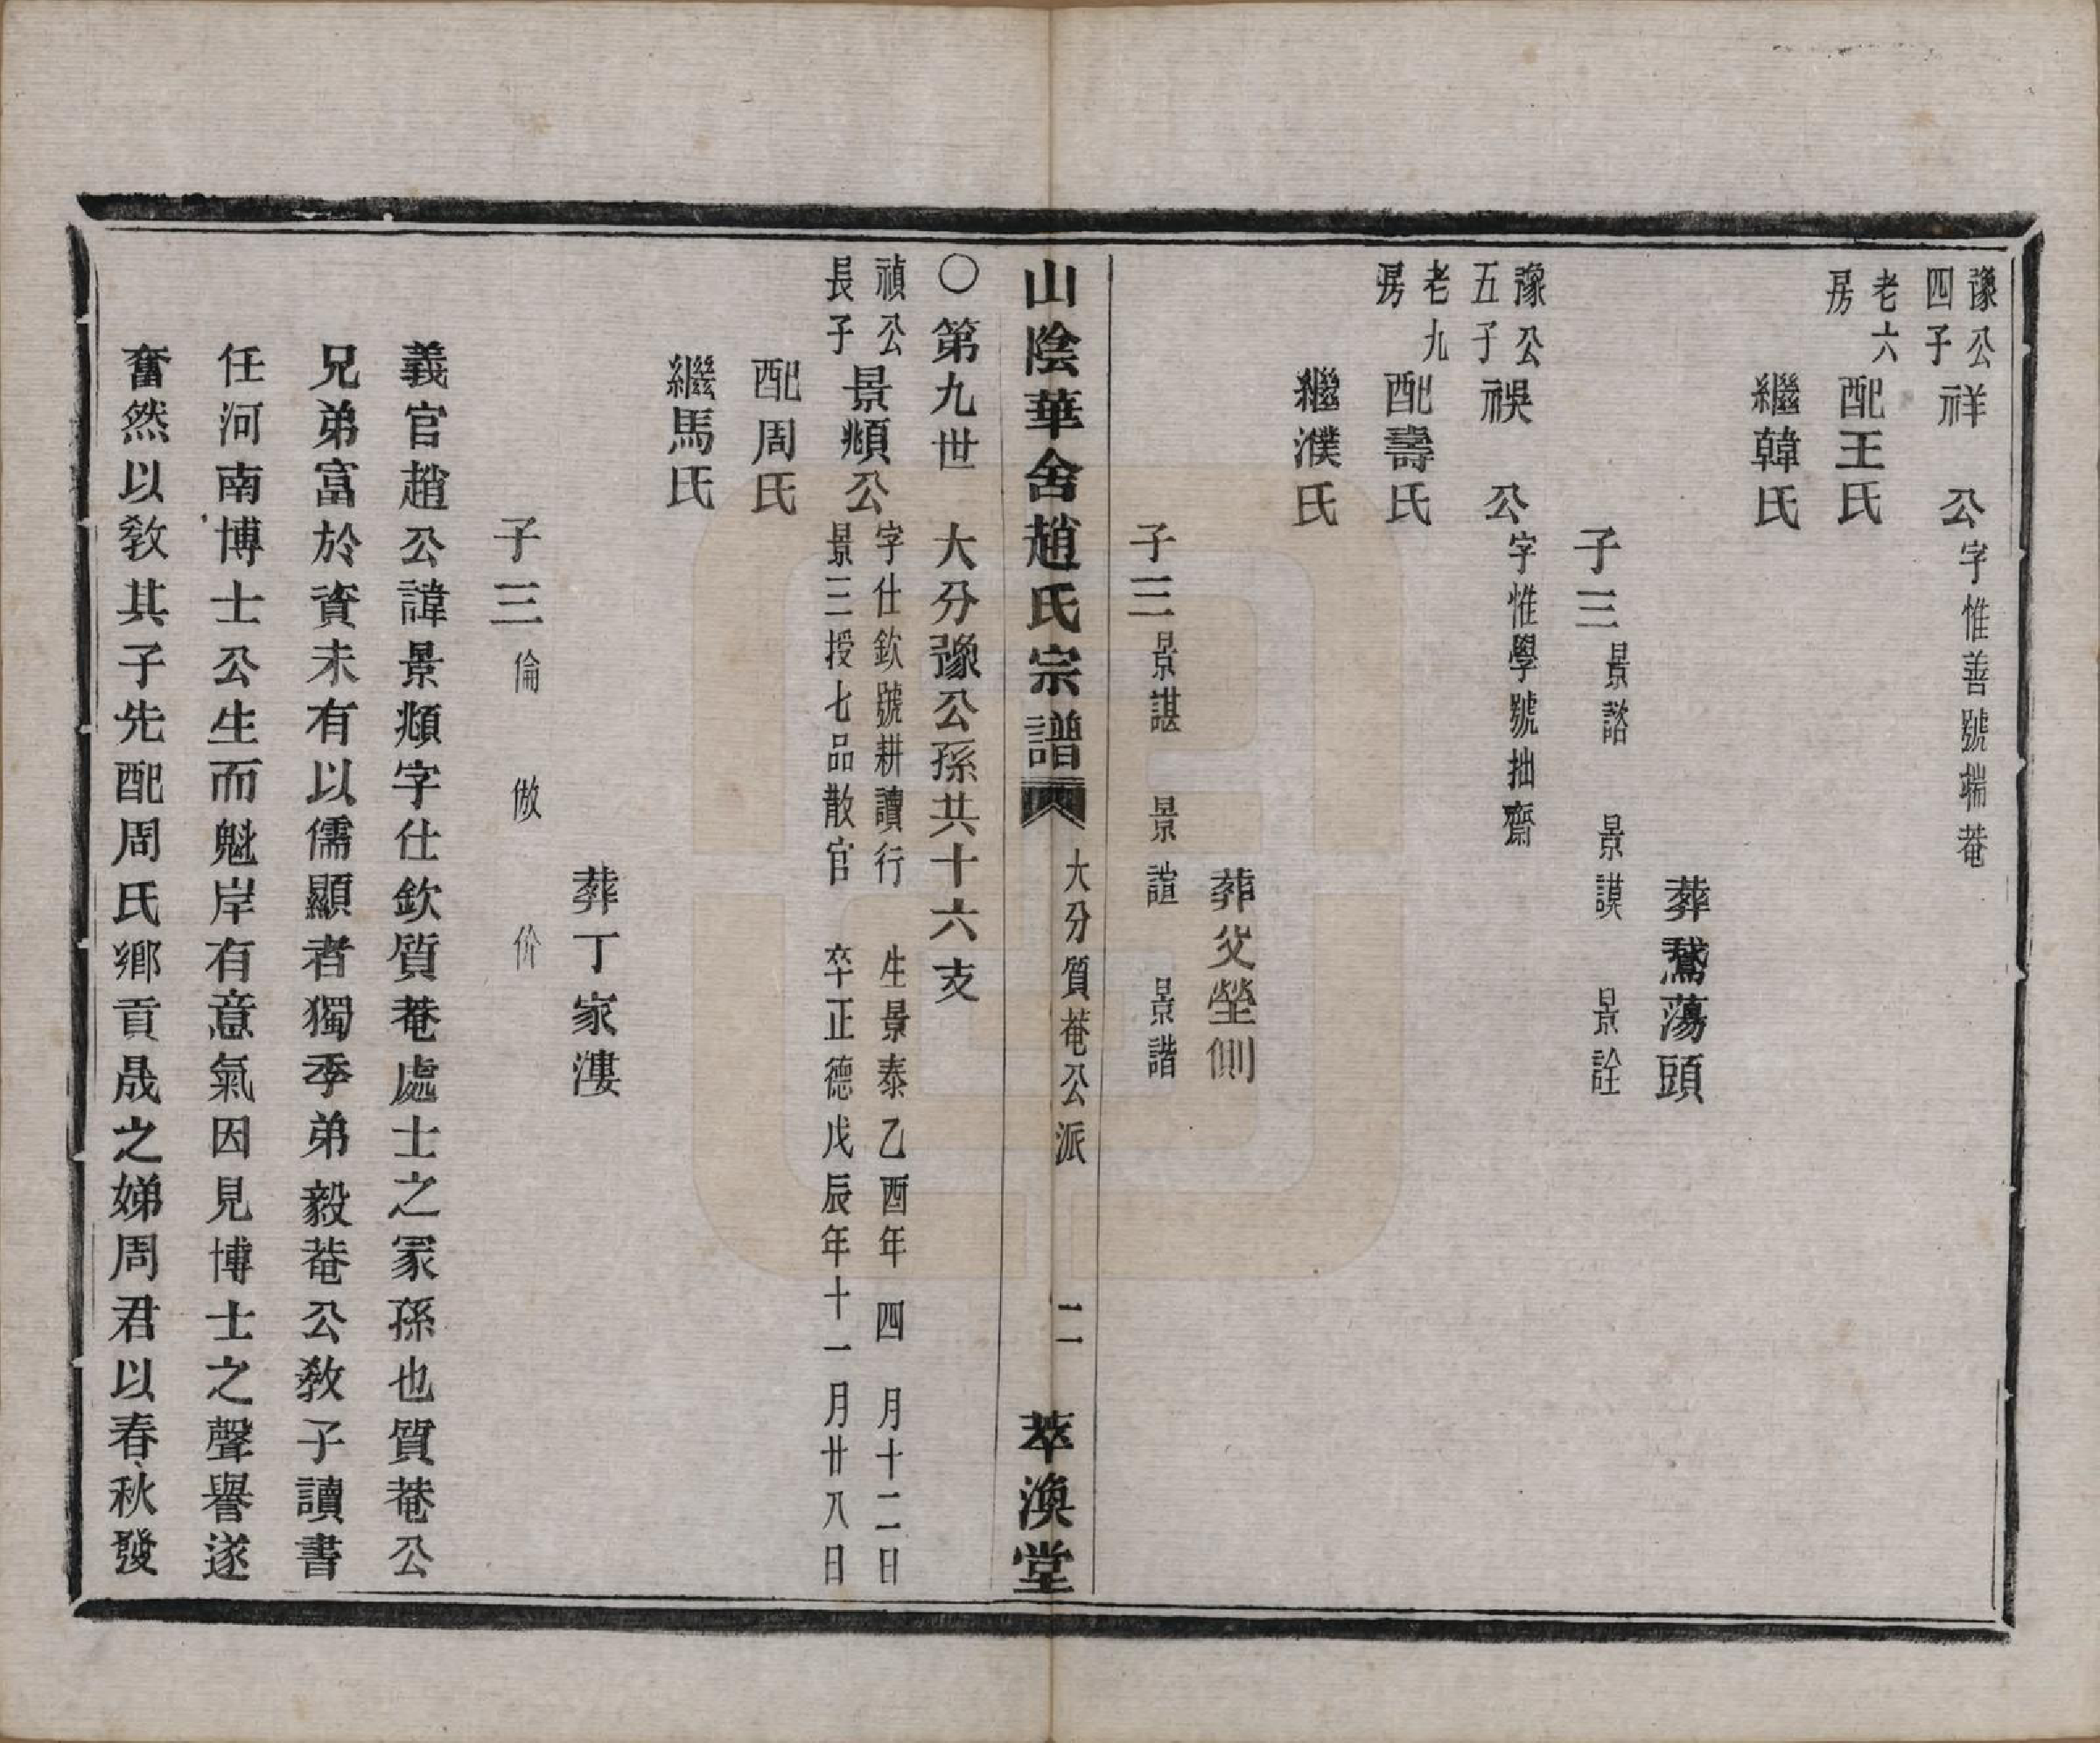 豫公四子
祥　公
字惟善號端菴
老六房
配王氏
繼韓氏
葬鵞蕩頭
子三
景諮　景謨　景詮
豫公五子
祦　公
字惟學號拙齋
老九房
配壽氏
繼濮氏
葬父塋側
子三
景諶　景諠　景諧
山陰華舍趙氏宗譜
大分質菴公派
二
萃渙堂
〇第九世　大分豫公孫共十六支
禎公長子
景頫公
字仕欽號耕讀行　生景泰乙酉年四月十二日
景三授七品散官　卒正德戊辰年十一月廿八日
配周氏
繼馬氏
葬丁家漊
子三
倫　倣　价
義官趙公諱景頫字仕欽質菴處士之冢孫也質菴公
兄弟富於資未有以儒顯者獨季弟毅菴公敎子讀書
任河南博士公生而魁岸有意氣因見博士之聲譽遂
奮然以敎其子先配周氏鄉貢晟之娣周君以春秋發